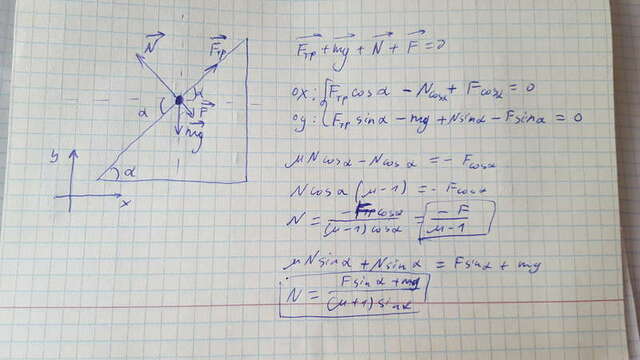 N⃗
F⃗тр
α
α
F⃗
mg⃗
y
α
x
F⃗тр + mg⃗ + N⃗ + F⃗ = 0
ox: { Fтр cosα - N cosα + F cosα = 0
oy: { Fтр sinα - mg + N sinα - F sinα = 0
μN cosα - N cosα = - F cosα
N cosα (μ - 1) = - F cosα
N = (-Fтр cosα)/((μ-1) cosα) = (- F)/(μ-1)
μN sinα + N sinα = F sinα + mg
N = (F sinα + mg)/((μ+1) sinα)